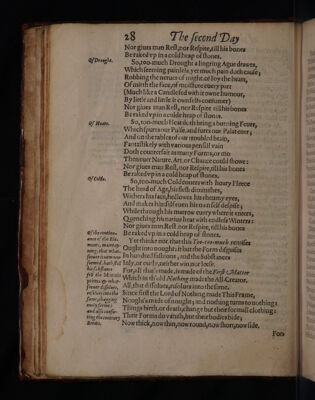 28 The second Day
Nor giues man Rest, nor Respite, till his bones
Be raked vp in a cold heap of stones.
Of Drought.
So, too-much Drought a lingring Ague drawes,
Which seeming painlesse, yet much pain doth cause;
Robbing the nerues of might, of Ioy the heart,
Of mirth the face, of moisture euery part
(Much like a Candle fed with it owne humour,
By little and little it owne selfs consumer)
Nor giues man Rest, nor Respite till his bones
Be raked vp in a cold heap of stones.
Of Heate.
So, too-much Heat doth bring a burning Feuer,
Which spurrs our Pulse, and furrs our Palat euer;
And on the tables of our troubled brain,
Fantastikely with various pensill vain
Doth counterfait as many Formes, or mo
Then euer Nature, Art, or Chance could showe:
Nor giues man Rest, nor Respite, till his bones
Be raked vp in a cold heap of stones.
Of Colde.
So, too-much Cold couers with hoary Fleece
The head of Age, his flesh diminishes,
Withers his face, hollowes his rheumy eyes,
And makes himself euen his own self despise;
While through his marrow euery where it enters,
Quenching his natiue heat with endlesse Winters:
Nor giues man Rest, nor Respite, till his bones
Be raked vp in a cold heap of stones.
Of the continuance of the Element,
Yet thinke not that this Too-too-much remises
Ought into nought: it but the Form disguises
In hundred fashions, and the Substances
Inly, or outly, neither win nor leese.
For, all that's made, is made of the First Matter
Which in th'old Nothing made the All-Creator.
All, that dissolues, resolues into the same.
Since first the Lord of Nothing made This Frame,
Nought's made of nought; and nothing turns to nothing:
Things birth, or death, change but their formall clothing:
Their Forms do vanish, but their bodies bide;
Now thick, now thin, now round, now short, now side.
For